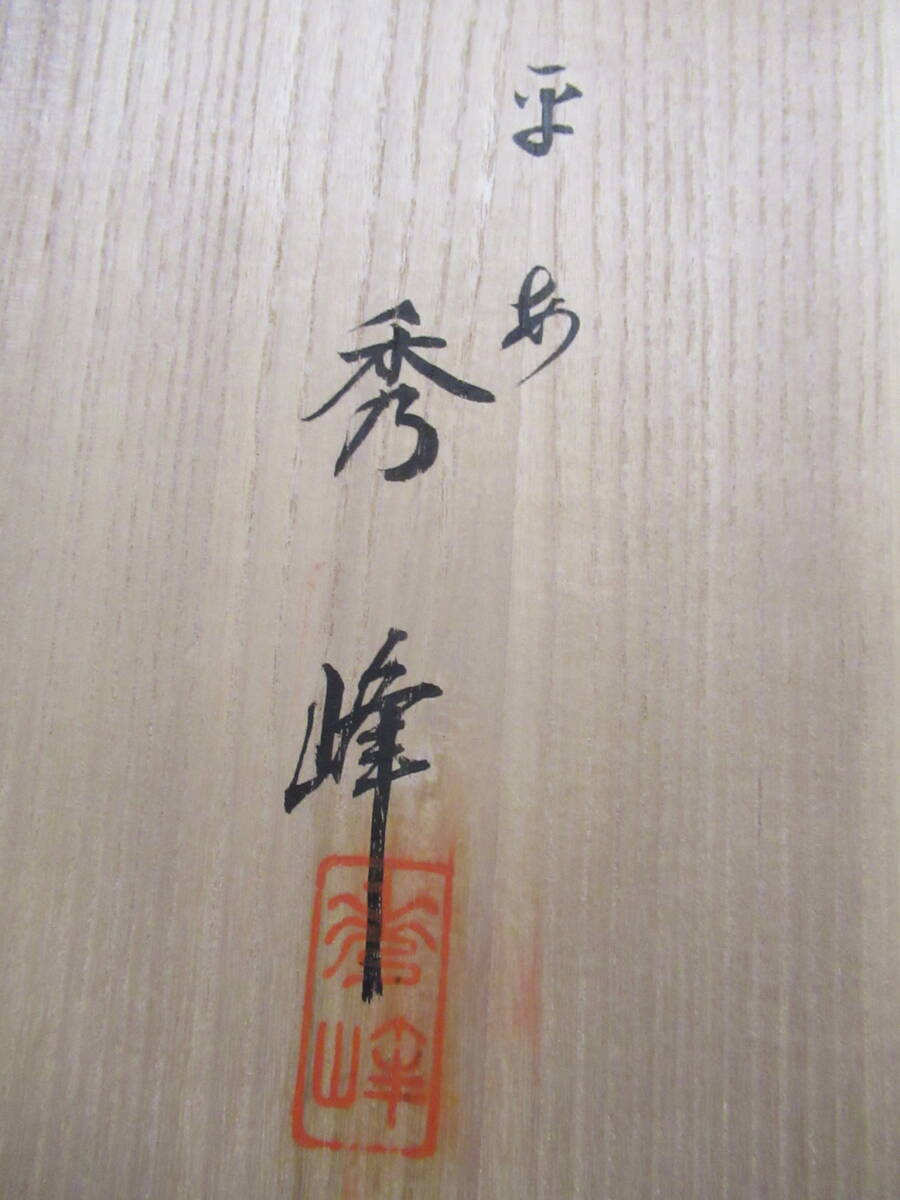 平安
秀峰
秀峰